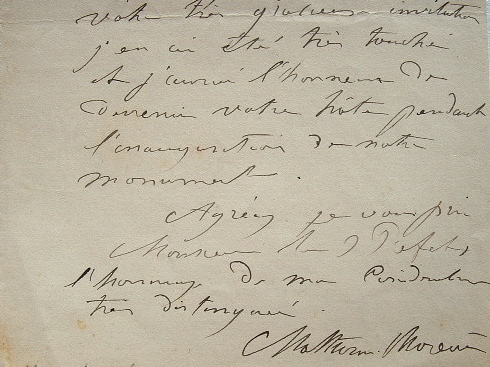 votre très gracieuse invitation
j'en ai été très touché
et j'aurai l'honneur de
devenir votre hôte pendant
l'inauguration de notre
monument.
Agréez je vous prie
Monsieur le Préfet,
l'hommage de ma Considération
très distinguée.
Mathurin Moreau